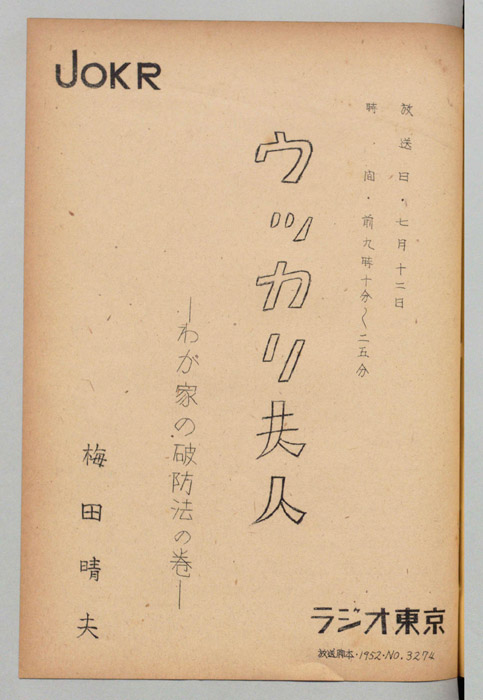 JOKR
放送日・七月十二日
時間・前九時十分〜二五分
ウッカリ夫人
―わが家の破防法の巻―
梅田晴夫
ラジオ東京
放送脚本・1952・NO.3274